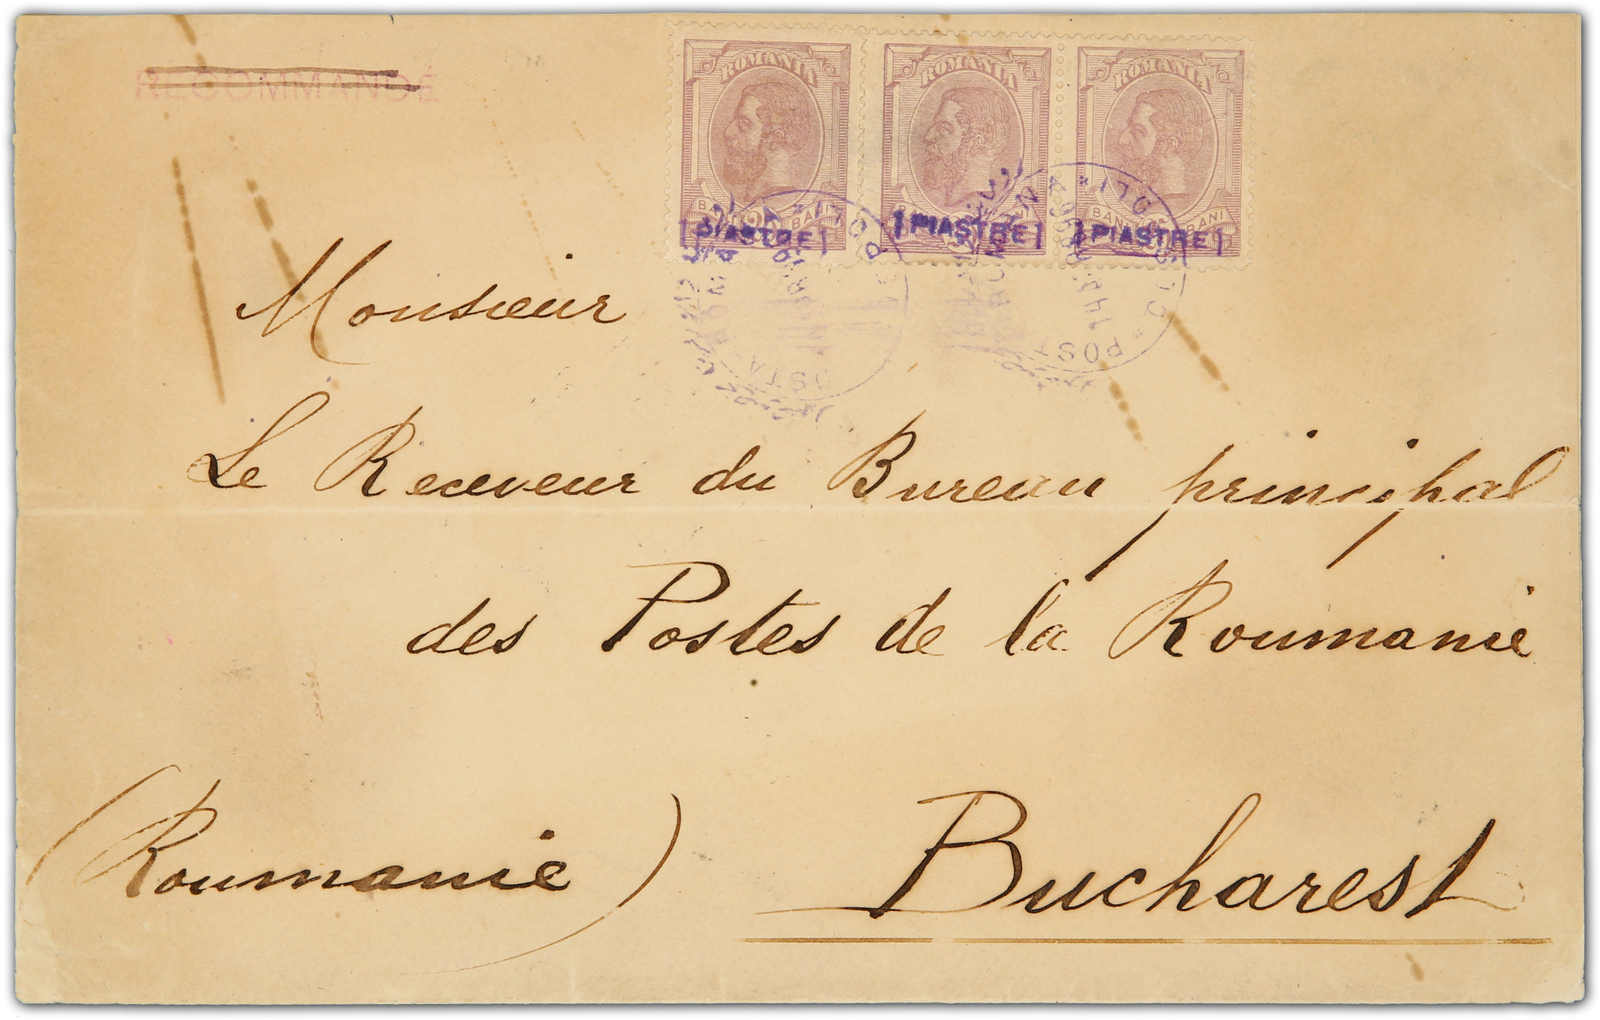 RECOMMANDÉ
ROMANIA ROMANIA ROMANIA
BANI BANI BANI
1 PIASTRE 1 1 PIASTRE 1 1 PIASTRE 1
POSTA
Monsieur
Le Receveur du Bureau principal
des Postes de la Roumanie
(Roumanie) Bucharest